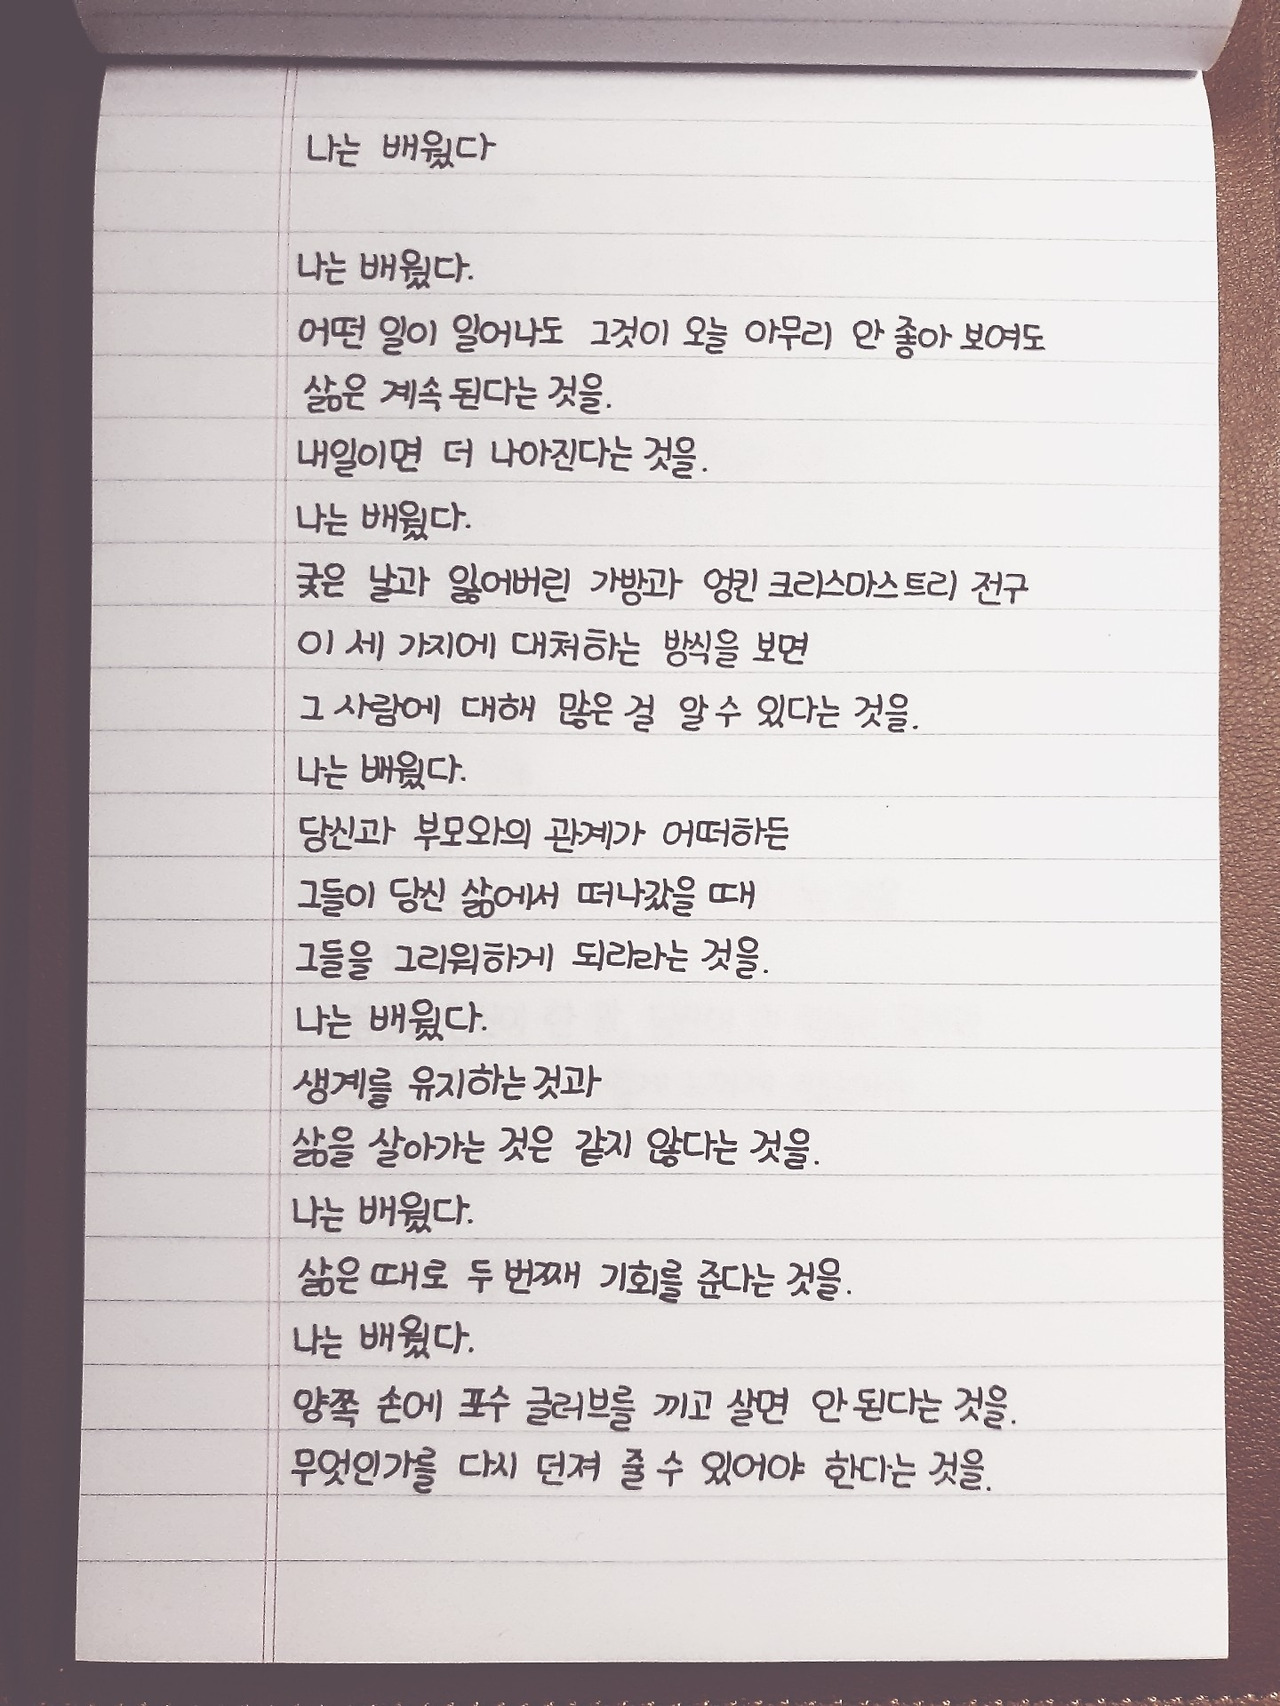 나는 배웠다
나는 배웠다.
어떤 일이 일어나도 그것이 오늘 아무리 안 좋아 보여도
삶은 계속 된다는 것을.
내일이면 더 나아진다는 것을.
나는 배웠다.
궂은 날과 잃어버린 가방과 엉킨 크리스마스트리 전구
이 세 가지에 대처하는 방식을 보면
그 사람에 대해 많은 걸 알 수 있다는 것을.
나는 배웠다.
당신과 부모와의 관계가 어떠하든
그들이 당신 삶에서 떠나갔을 때
그들을 그리워하게 되리라는 것을.
나는 배웠다.
생계를 유지하는 것과
삶을 살아가는 것은 같지 않다는 것을.
나는 배웠다.
삶은 때로 두 번째 기회를 준다는 것을.
나는 배웠다.
양쪽 손에 포수 글러브를 끼고 살면 안 된다는 것을.
무엇인가를 다시 던져 줄 수 있어야 한다는 것을.